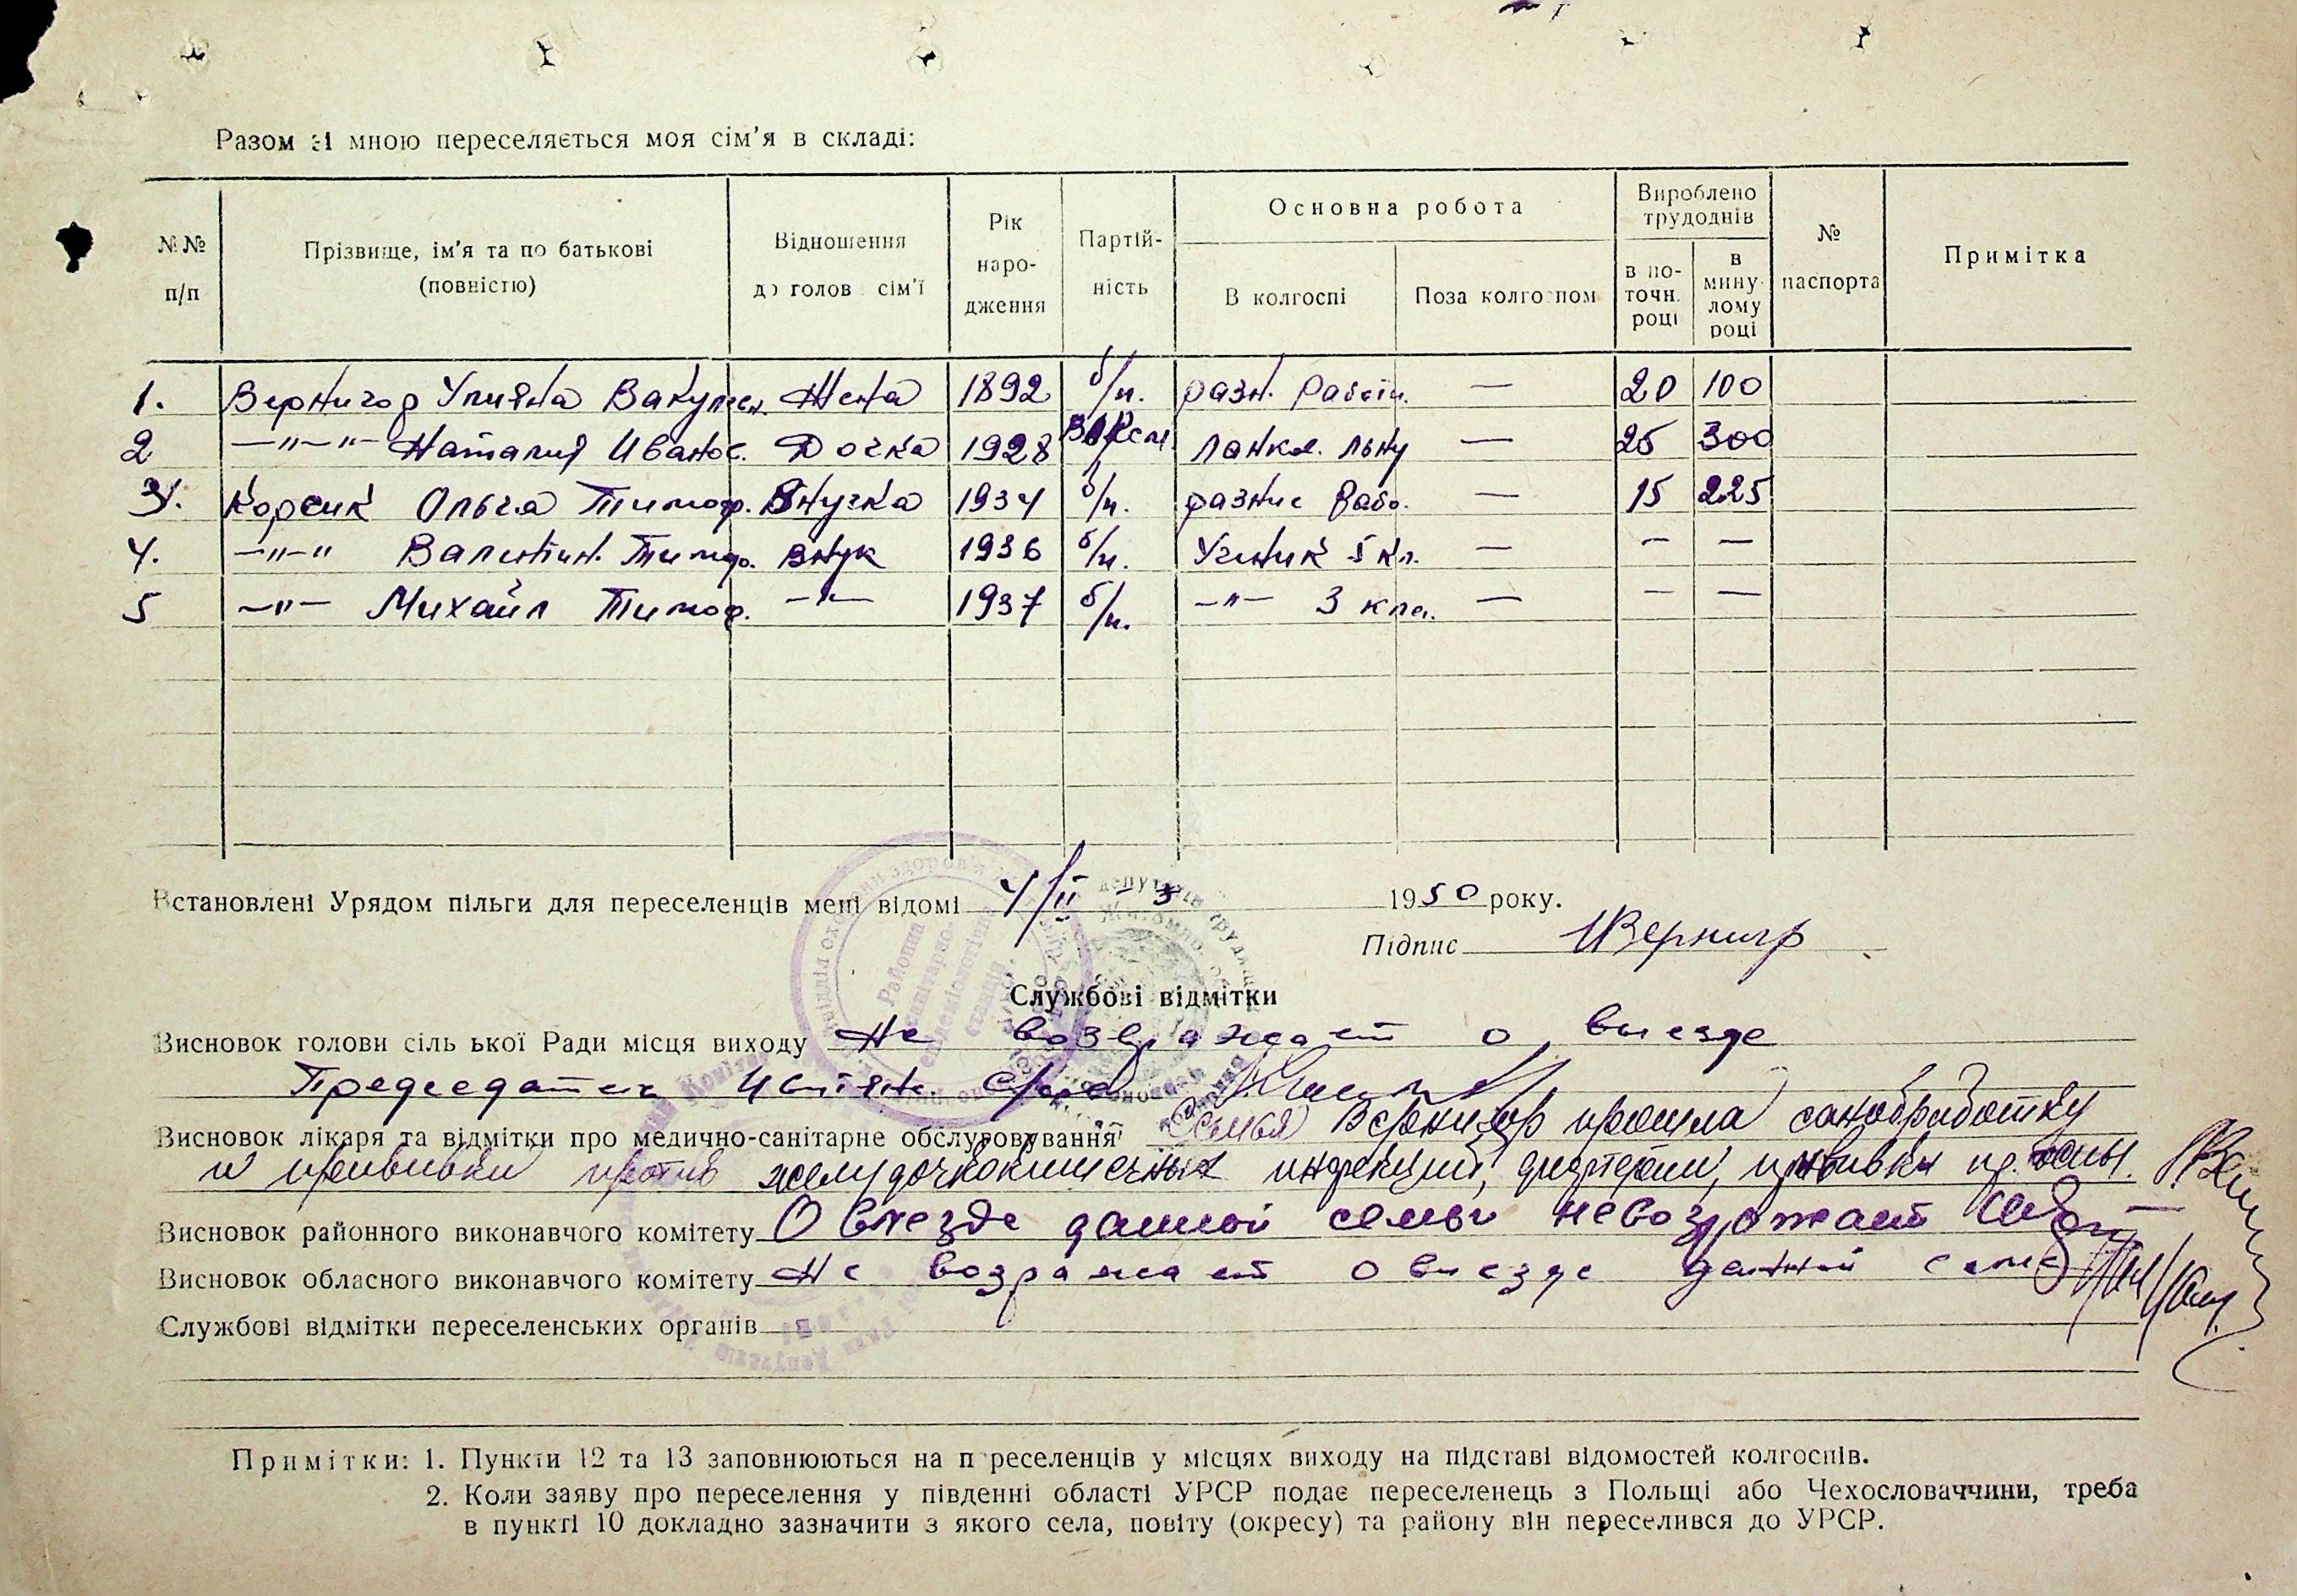 Разом зі мною переселяється моя сім'я в складі:
№№ п/п
Прізвище, ім'я та по батькові (повністю)
Відношення до голов сім'ї
Рік народження
Партійність
Основна робота
В колгоспі
Поза колго пом
Вироблено трудоднів
в поточн. році
в минулому році
№ паспорта
Примітка
1. Вернигор Уляна Вакулен. Жена 1892 б/п. разн. работи. — 20 100
2 —"—"— Наталия Иванов. Дочка 1928 ВЛКСМ ланков. льну — 25 300
3. Корсик Ольга Тимоф. Внучка 1934 б/п. разние рабо. — 15 225
4. —"—" Валентин. Тимоф. Внук 1936 б/п. Ученик 5 кл. — — —
5 —"— Михайл Тимоф. —"— 1937 б/п. —"— 3 кла. — — —
Встановлені Урядом пільги для переселенців мені відомі 4/II – 1950 року.
Підпис ИВернигр
Службові відмітки
Висновок голови сіль ької Ради місця виходу Не возражает о виезде
Председатель
Висновок лікаря та відмітки про медично-санітарне обслуровування Семья Вернигор прошла санобработку
и прививки против желудочнокишечных инфекций, дифтерии, прививки пр. оспы.
Висновок районного виконавчого комітету О виезде данной семьи невозражает
Висновок обласного виконавчого комітету Не возражает о виезде данной семьи
Службові відмітки переселенських органів
Примітки: 1. Пункти 12 та 13 заповнюються на п реселенців у місцях виходу на підставі відомостей колгоспів.
2. Коли заяву про переселення у південні області УРСР подає переселенець з Польщі або Чехословаччини, треба
в пункті 10 докладно зазначити з якого села, повіту (окресу) та району він переселився до УРСР.